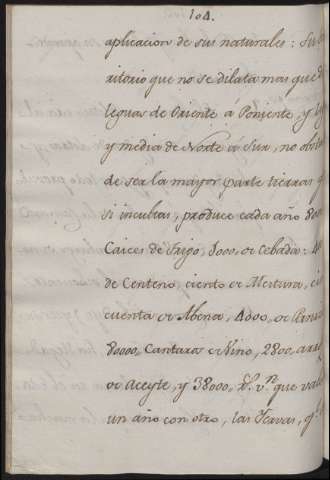 104.
aplicacion de sus naturales: Su
ritorio que no se dilata mas que
leguas de Oriente á Poniente, y
y media de Norte á Sur, no obs
de ser la mayor parte tierras
si incultas, produce cada año
Caices de Trigo, 8000, de Cebada:
de Centeno, ciento de Mestura,
cuenta de Abena, 4000, de
80000, Cantaras de Vino, 2800,
de Aceyte, y 38000, Rs. vn. que val
un año con otro, las Yervas,